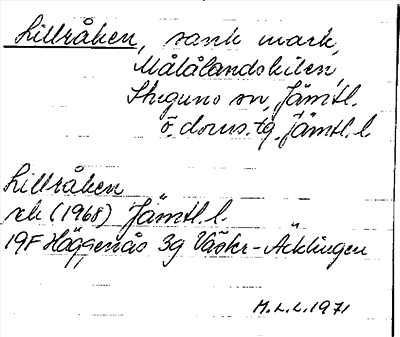 Lillråken, sank mark,
Målålandskilen,
Stuguns sn, Jämtl.
ö. doms. tg, Jämtl. l.
Lillråken
rek (1968) Jämtl. l.
19F Häggenås 3g Väster-Acklingen
M.L.L. 1971